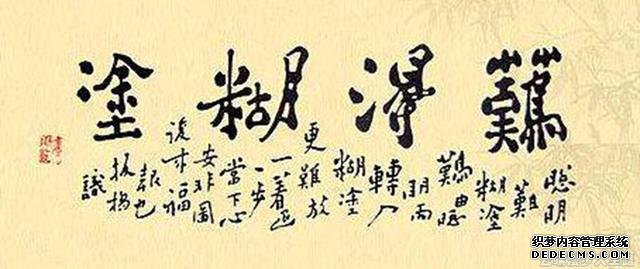 難得糊塗
聰明
難
糊塗
難由聰
明而
轉入
糊塗
更難放
一着退
一步
當下心
安非圖
後來福
報也
板橋
識
织梦内容管理系统
DEDECMS.COM